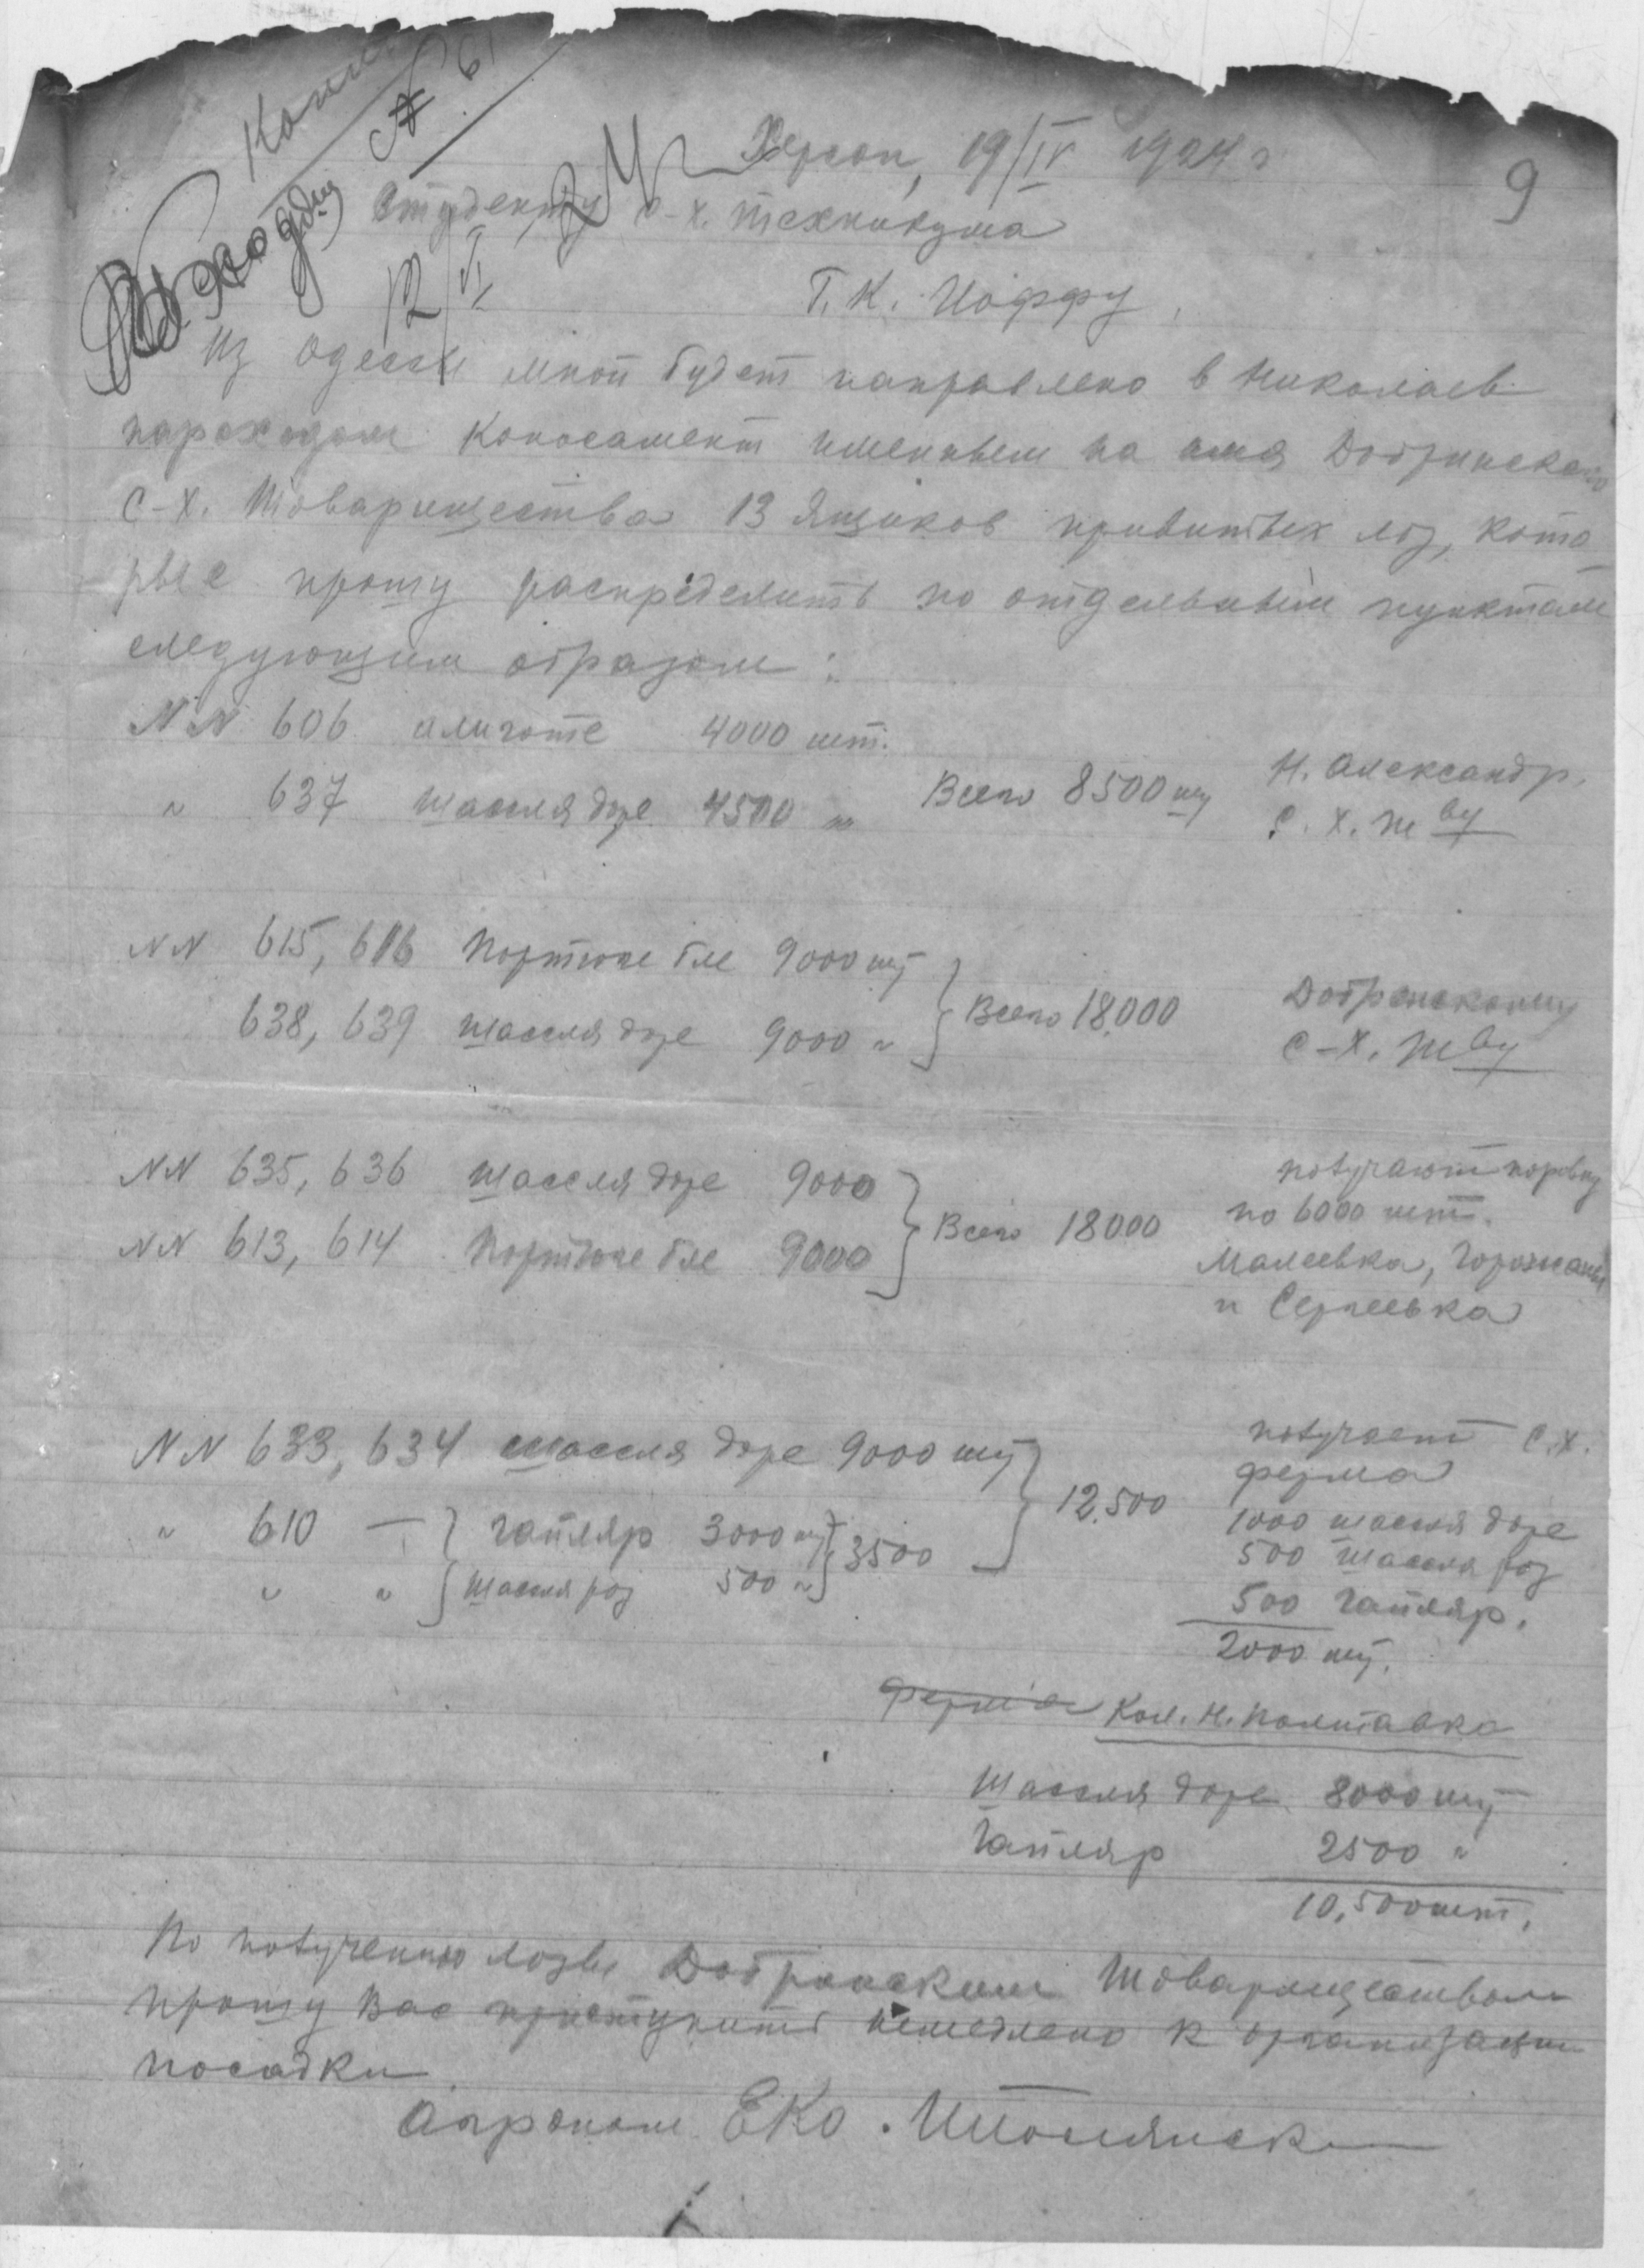 Копия
№ 61
9
Херсон, 19/IV 1924 г
Студенту с-х. техникума
Т. К. Иоффу.
Из Одессы мной будет направлено в Николаев
пароходом коносамент именным на имя Добринского
С-Х. Товарищества 13 ящиков привитых лоз, кото
рые прошу распределить по отдельным пунктам
следующим образом:
NN 606 алиготе 4000 шт.
" 637 шассля доре 4500 " Всего 8500 шт Н. Александр.
С. Х. т ву
NN 615, 616 Португие бле 9000 шт
638, 639 шассля доре 9000 " Всего 18.000 Добринскому
С-Х. т ву
NN 635, 636 шассля доре 9000
NN 613, 614 Португие бле 9000 Всего 18000
получают поровну
по 6000 шт.
Малеевка, Горожани
и Сергеевка
NN 633, 634 шассля доре 9000 шт
" 610 — гайляр 3000 шт
" " шассля роз 500 " 3500
12.500
получает С.Х.
ферма
1000 шассля доре
500 шассля роз
500 гайляр.
2000 шт.
ферма Кол. Н. Полтавка
Шассля доре 8000 шт
Гайляр 2500 "
10,500 шт.
По получению лозы Добринским Товариществом
прошу Вас приступить немедлено к организации
посадки.
Агроном ЕКО.